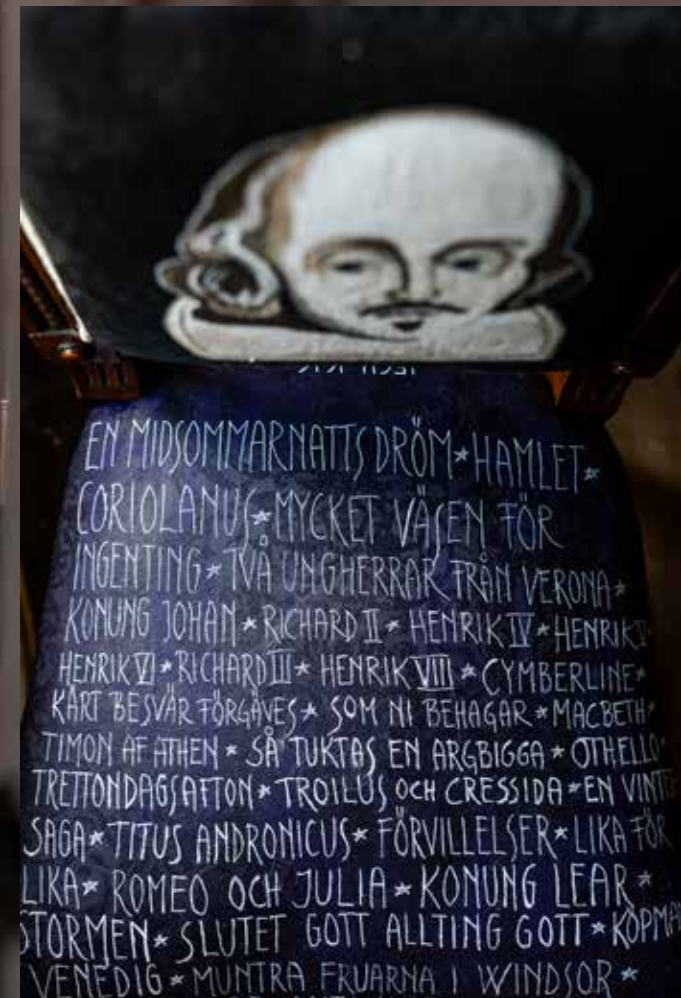 EN MIDSOMMARNATTS DRÖM * HAMLET *
CORIOLANUS * MYCKET VÄSEN FÖR
INGENTING * TVÅ UNGHERRAR FRÅN VERONA *
KONUNG JOHAN * RICHARD II * HENRIK IV * HENRIK V
HENRIK VI * RICHARD III * HENRIK VIII * CYMBERLINE *
KÄRT BESVÄR FÖRGÄVES * SOM NI BEHAGAR * MACBETH *
TIMON AF ATHEN * SÅ TUKTAS EN ARGBIGGA * OTHELLO *
TRETTONDAGSAFTON * TROILUS OCH CRESSIDA * EN VINTE
SAGA * TITUS ANDRONICUS * FÖRVILLELSER * LIKA FÖR
LIKA * ROMEO OCH JULIA * KONUNG LEAR *
STORMEN * SLUTET GOTT ALLTING GOTT * KÖPMA
VENEDIG * MUNTRA FRUARNA I WINDSOR *